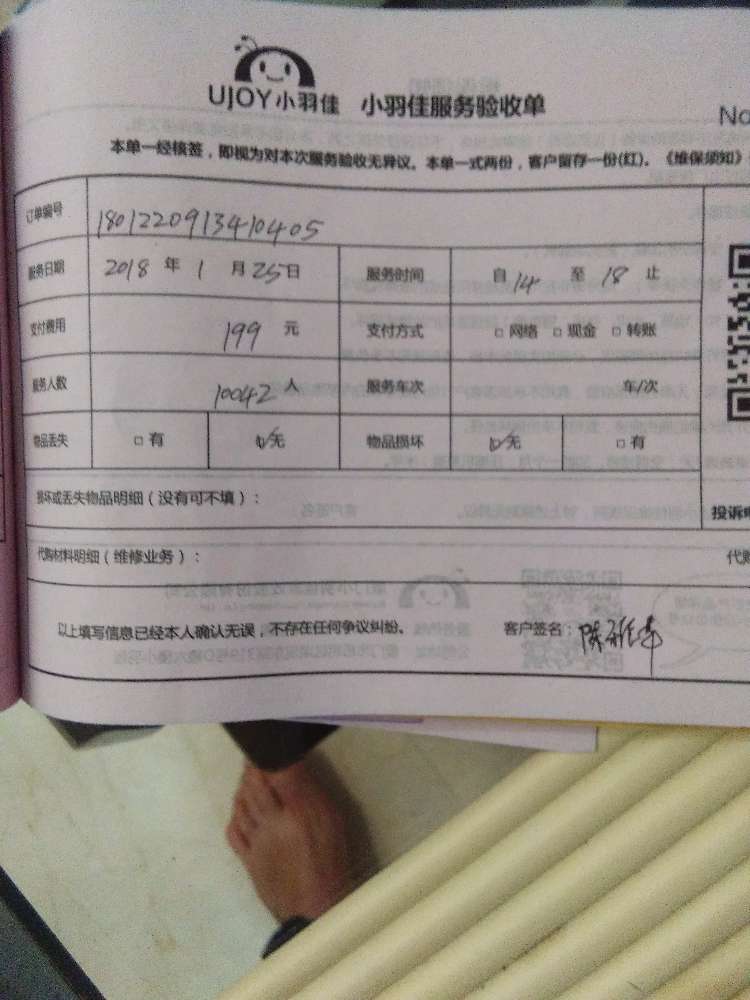 UJOY小羽佳 小羽佳服务验收单
No
本单一经核签，即视为对本次服务验收无异议。本单一式两份，客户留存一份(红)。《维保须知》
订单编号 1801220913410405
服务日期 2018 年 1 月 25 日 服务时间 自 14 至 18 止
支付费用 199 元 支付方式 □ 网络 □ 现金 □ 转账
服务人数 10042 人 服务车次 车/次
物品丢失 □ 有 ☑ 无 物品损坏 ☑ 无 □ 有
损坏或丢失物品明细（没有可不填）：
投诉
代购材料明细（维修业务）：
代购
以上填写信息已经本人确认无误，不存在任何争议纠纷。 客户签名：陈